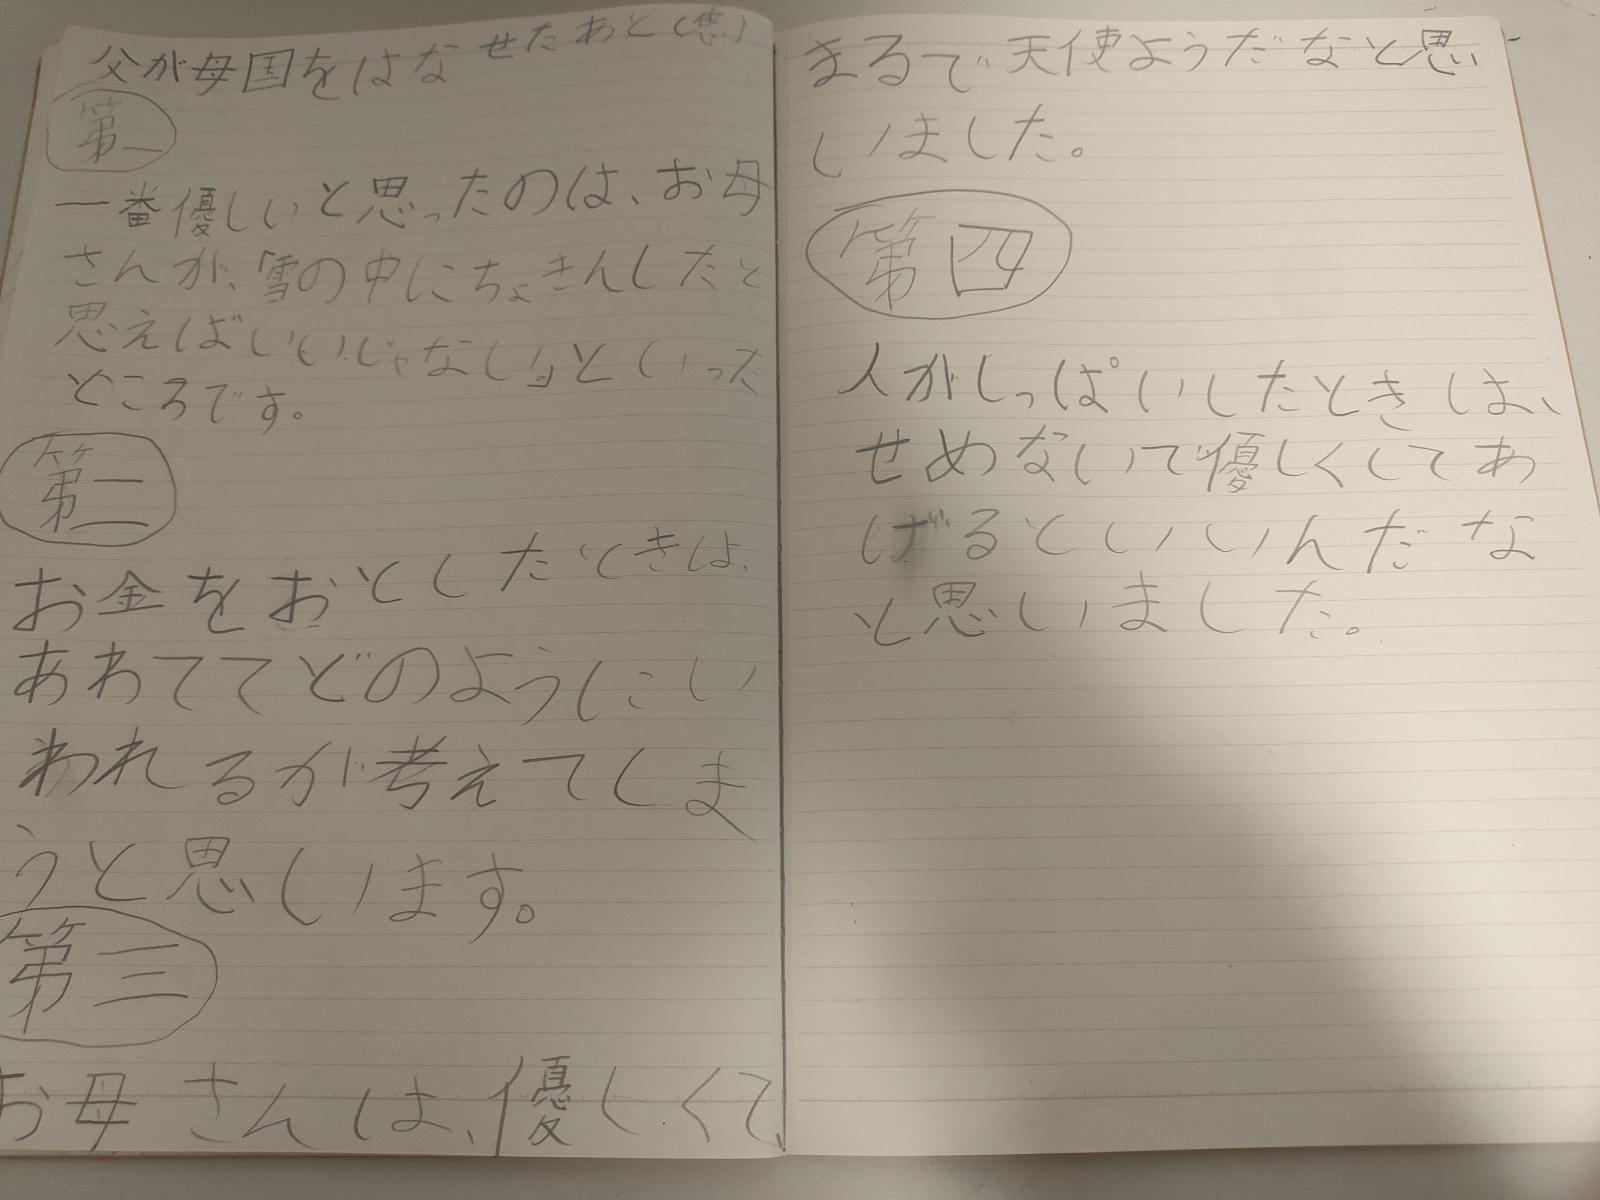 父が母国をはなせたあと(悠)
第一
一番優しいと思ったのは、お母
さんが、「雪の中にちょきんしたと
思えばいいじゃない」といった
ところです。
第二
お金をおとしたときは、
あわててどのようにい
われるが考えてしま
うと思います。
第三
お母さんは、優しくて、
まるで天使ようだなと思
いました。
第四
人がしっぱいしたときは、
せめないで優しくしてあ
げるといいんだな
と思いました。